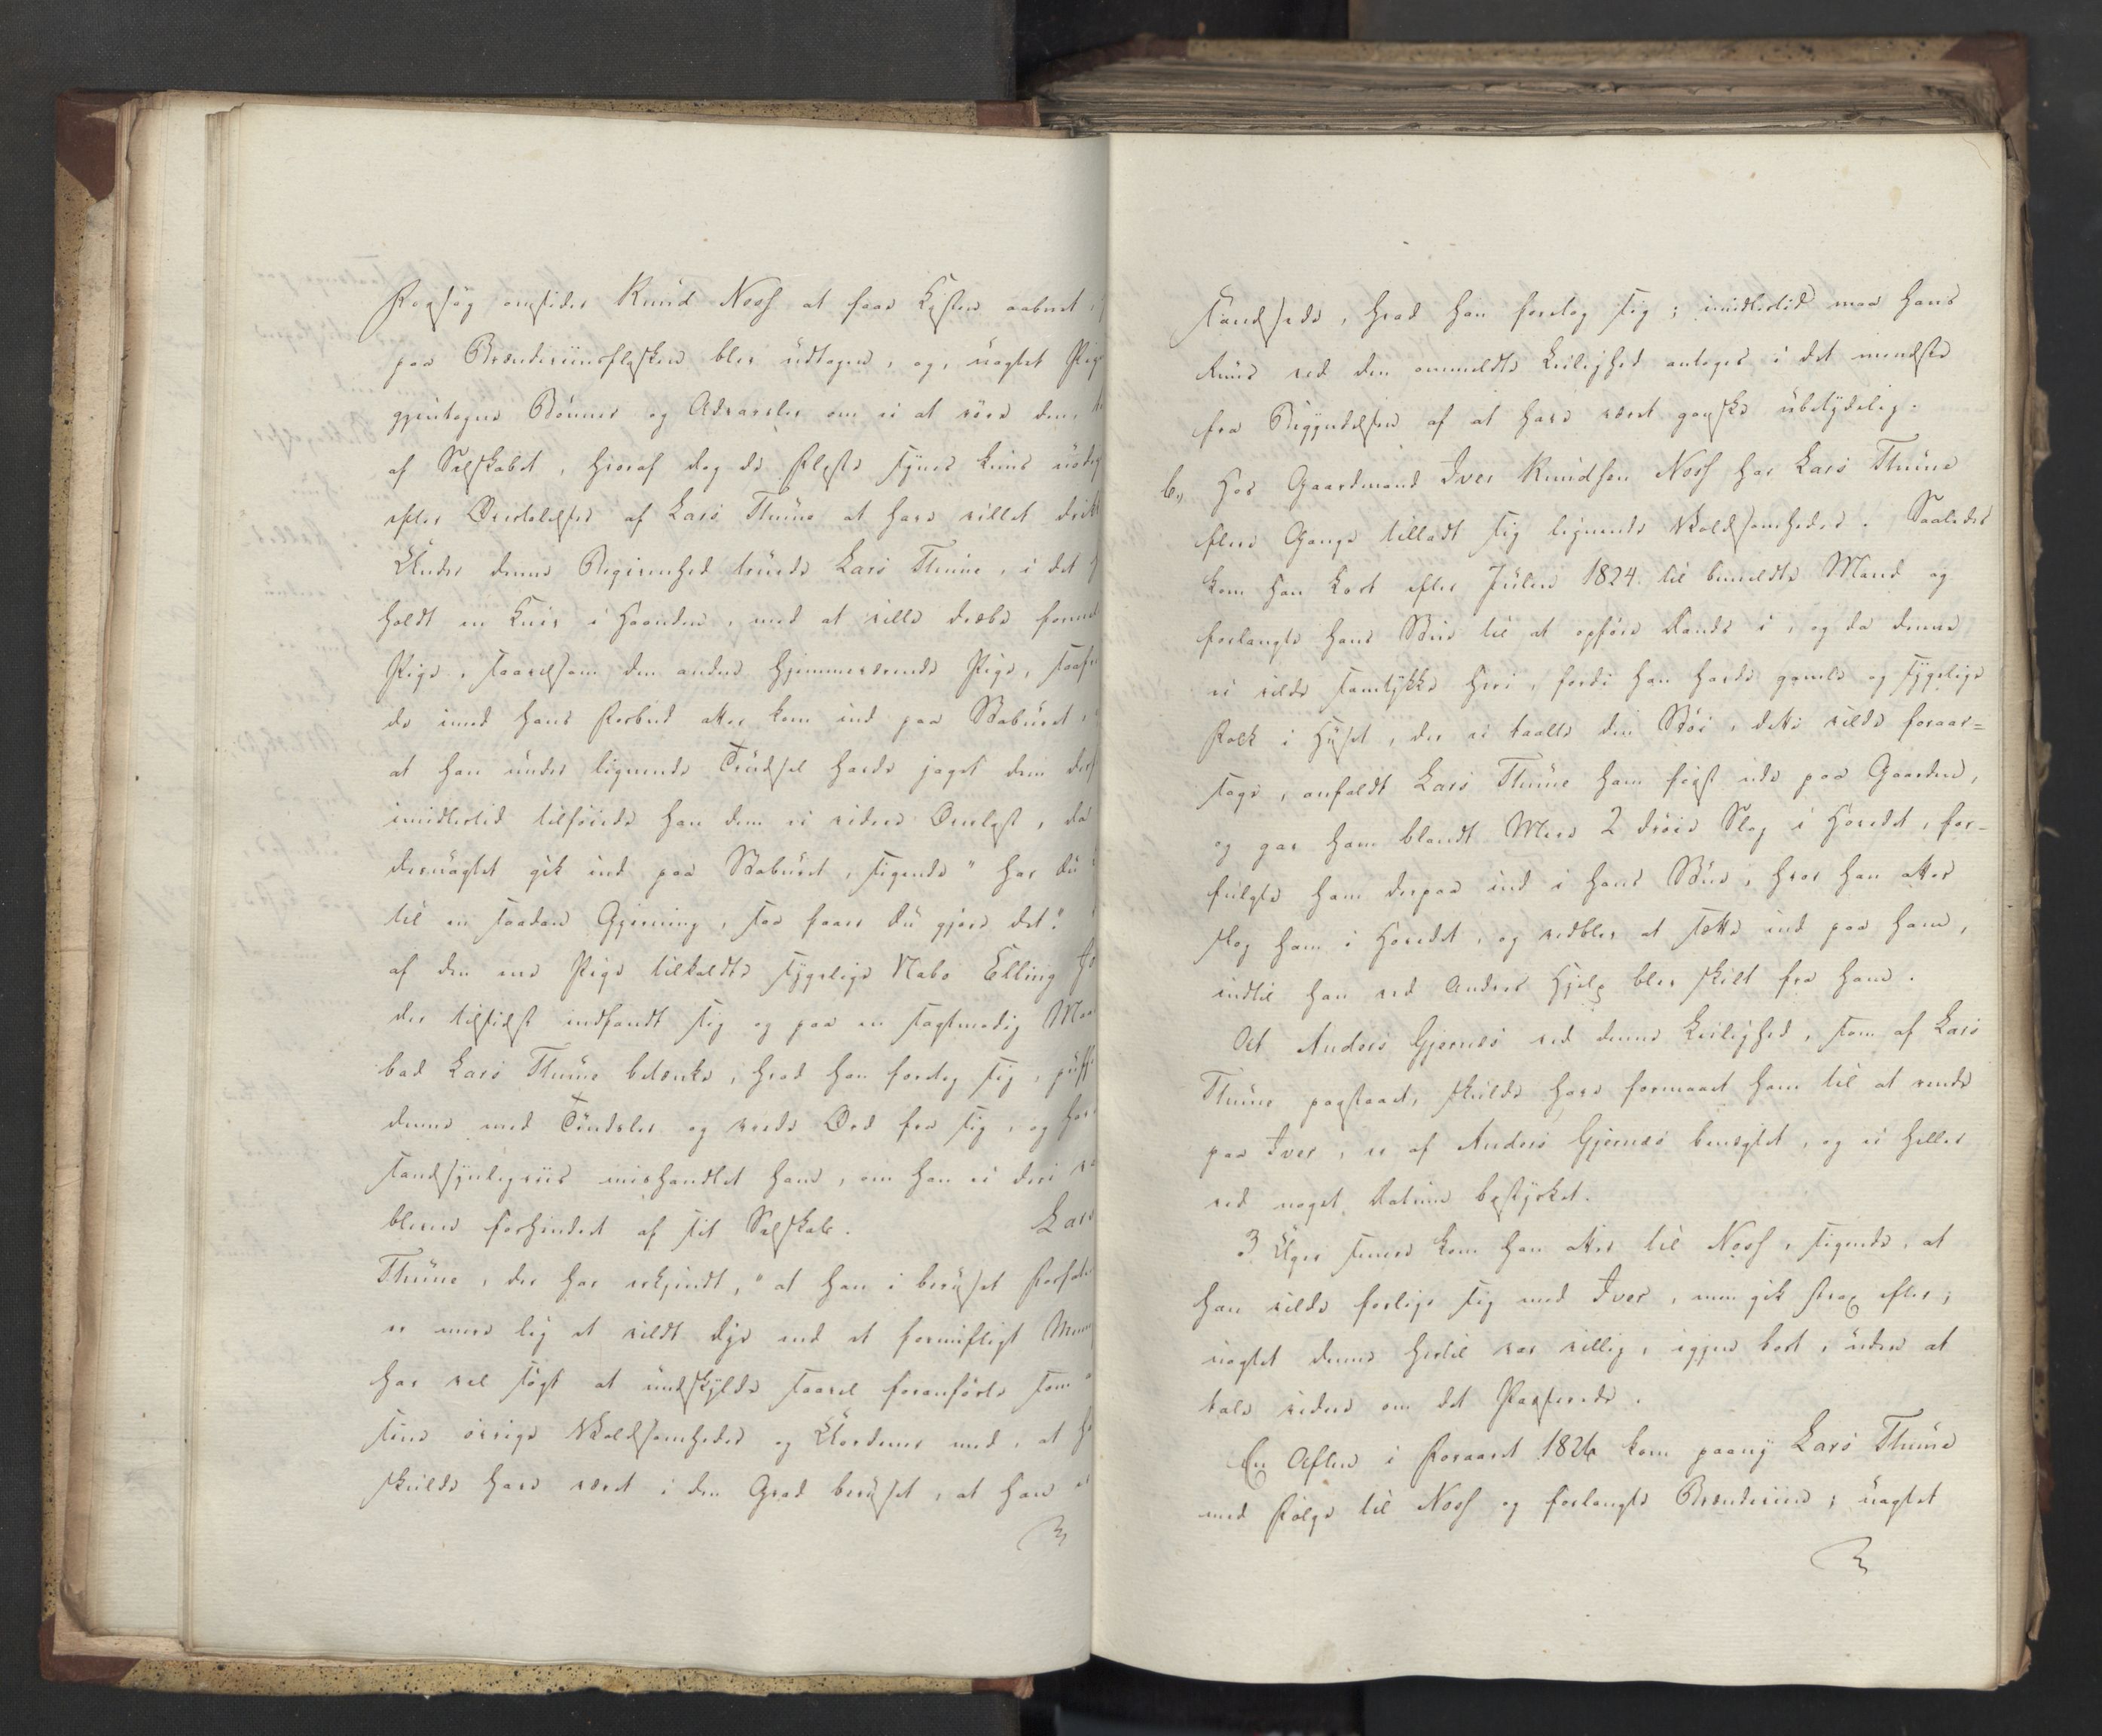 Forsøg omsider Knud Noss at faae Kisten aabnet,
paa Brændeviinsflasken blev udtagen, og, uagtet Pig
gjentagne Bønner og Advarsler om ei at røre den,
af Selskabet, hvoraf dog de fleste synes kuns nødig
efter Overtalelse af Lars Thune at have villet drik
Under denne Begivenhed truede Lars Thune, i det
holdt en Kniv i Haanden, med at ville dræbe formel
Pige, saavelsom den anden hjemmeværende Pige, saafr
de imod hans Forbud atter kom ind paa Staburet,
at han under lignende Trudsel havde jaget dem der
imidlertid tilføiede han dem ei videre Overlast, da
desuagtet gik ind paa Staburet, sigende "har du
til en saadan Gjerning, saa faaer du gjøre det".
af den ene Pige tilkaldte sygelige Nabo Elling
der tilsidst indfandt sig og paa en sagtmodig Maa
bad Lars Thune betænke, hvad han foretog sig,
denne med Trudsler og vrede Ord fra sig, og hav
sandsynligviis mishandlet ham, om han ei deri va
bleven forhindret af sit Selskab. Lars
Thune, der har erkjendt, "at han i beruset Forfat
er mere lig et vildt Dyr end et fornuftigt Menn
har vel søgt at undskylde saavel foranførte som
sine øvrige Voldsomheder og Uordener med, at h
skulde have været i den Grad beruset, at han
sandsede, hvad han foretog sig; imidlertid maa hans
Ruus ved den ommeldte Leilighed antages i det mindste
fra Begyndelsen af at have været ganske ubetydelig.
b., Hos Gaardmand Iver Knudsen Noss har Lars Thune
flere Gange tilladt sig lignende Voldsomheder. Saaledes
kom han kort efter Julen 1824 til bemeldte Mand og
forlangte hans Stue til at opføre Dands i, og da denne
ei vilde samtykke heri, fordi han havde gamle og sygelige
Folk i Huset, der ei taalte den Støi, dette vilde foraar=
sage, anfaldt Lars Thune ham først ude paa Gaarden,
og gav ham blandt Mere 2 drøie Slag i Hovedet, for-
fulgte ham derpaa ind i hans Stue, hvor han atter
slog ham i Hovedet, og vedblev at sette ind paa ham,
indtil han ved Andres Hjelp blev skilt fra ham.
At Anders Gjernes ved denne Leilighed, som af Lars
Thune paastaaet, skulde have formaaet ham til at rende
paa Iver, er af Anders Gjernes benægtet, og ei heller
ved noget Datum bestyrket.
3 Uger senere kom han atter til Noss, sigende, at
han vilde forlige sig med Iver, men gik strax efter,
uagtet denne hertil var villig, igjen bort, uden at
tale videre om det Passerede.
En Aften i Foraaret 1826 kom paany Lars Thune
med Følge til Noss og forlangte Brændeviin; uagtet